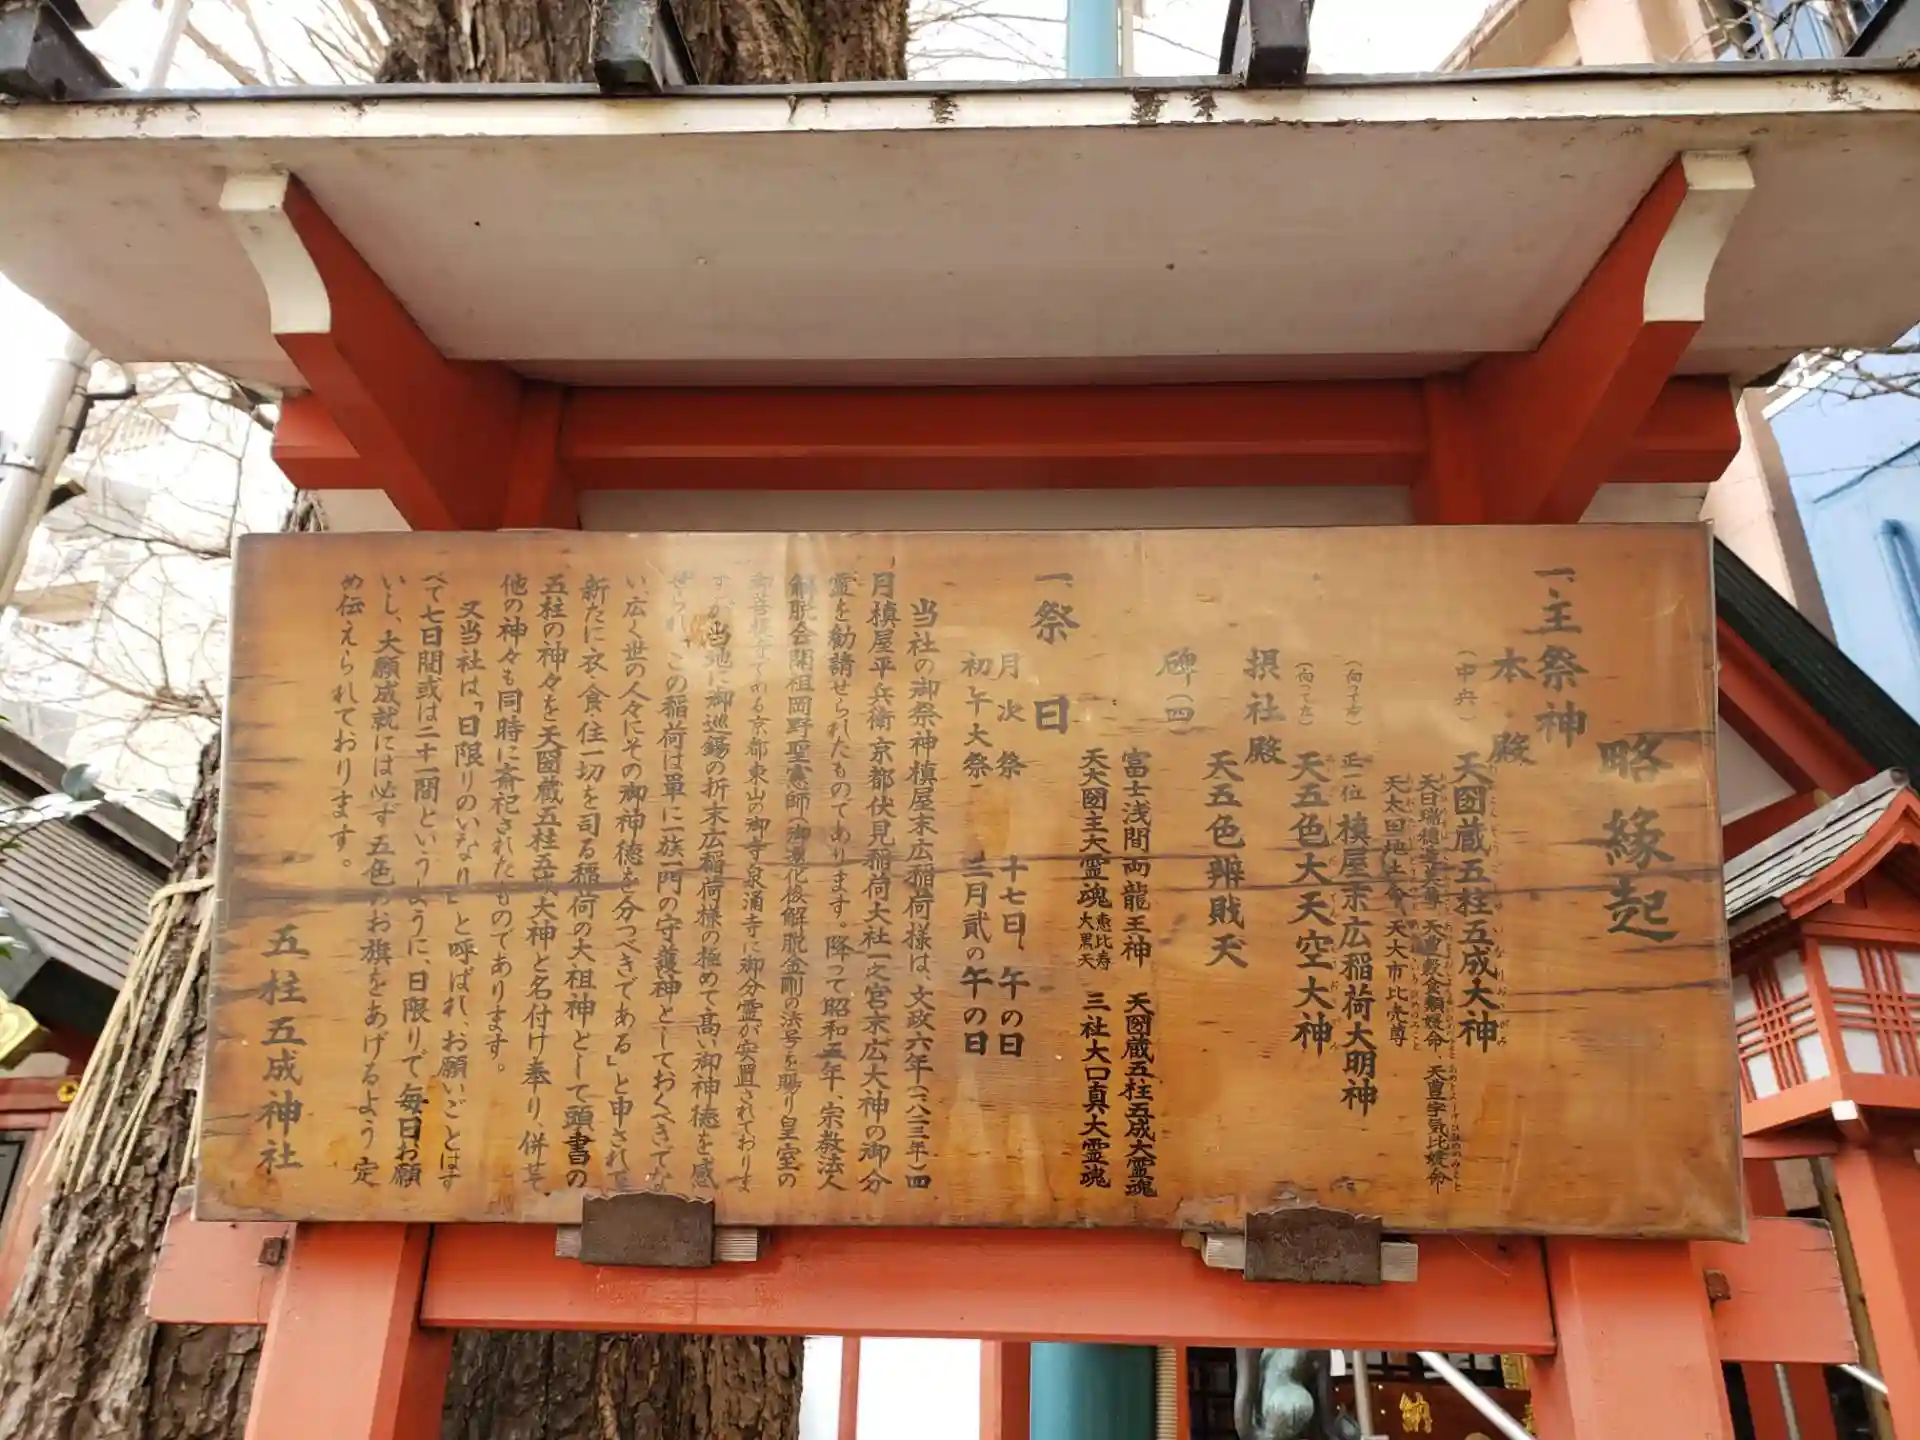 略縁起
一、主祭神
本殿
(中央) 天圀蔵五柱五成大神
天日瑞穂 尊 天豊穀食類嫒命 天豊宇気比嫒命
天太田地主命 天大市比売尊
(向って右) 正一位 槙屋末広稲荷大明神
(向って左) 天五色大天空大神
摂社殿 天五色辨戝天
碑(四) 富士浅間両龍王神 天圀蔵五柱五成大霊魂
天大圀主大霊魂 恵比寿 大黒天 三社大口真大霊魂
一、祭日
月次祭 十七日、午の日
初午大祭 三月貳の午の日
当社の御祭神槙屋末広稲荷様は、文政六年(一八二三年)四
月槙屋平兵衛京都伏見稲荷大社一之宮末広大神の御分
霊を勧請せられたものであります。降って昭和五年、宗教法人
解脱会開祖岡野聖憲師(御遷化後解脱金剛の法号を賜り皇室の
御菩提寺である京都東山の御寺泉涌寺に御分霊が安置されておりま
す)が当地に御巡錫の折末広稲荷様の極めて高い御神徳を感
ぜられ「この稲荷は単に一族一門の守護神としておくべきでな
い、広く世の人々にその御神徳を分つべきである」と申されて
新たに衣・食・住一切を司る稲荷の大祖神として頭書の
五柱の神々を天圀蔵五柱五成大神と名付け奉り、併せて
他の神々も同時に斎祀されたものであります。
又当社は、「日限りのいなり」と呼ばれ、お願いごとはす
べて七日間或は二十一間というように、日限りで毎日お願
いし、大願成就には必ず五色のお旗をあげるよう定
め伝えられております。
五柱五成神社
納